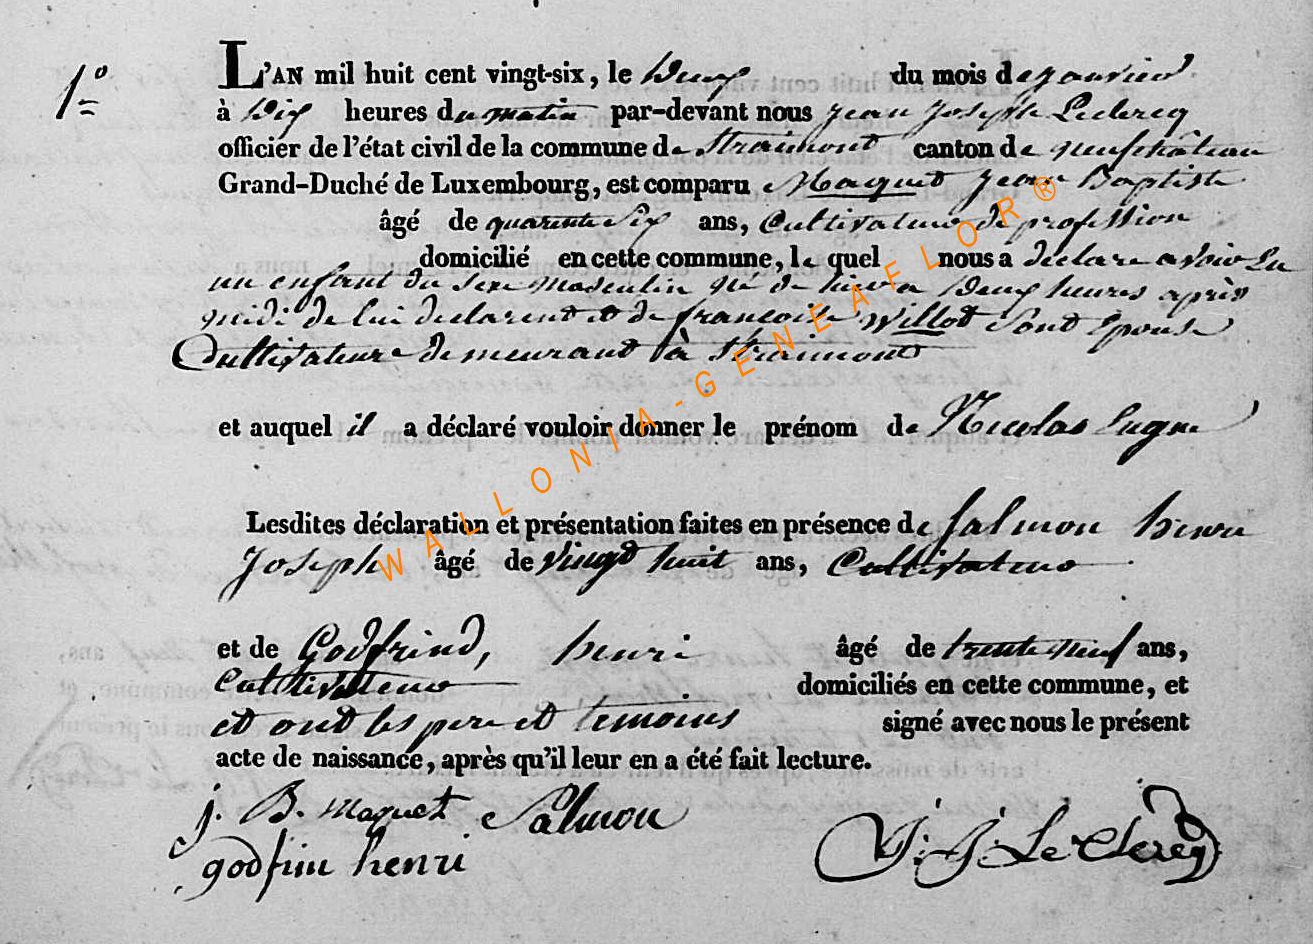 1º
L'AN mil huit cent vingt-six, le Deux du mois de janvier
à Dix heures du matin par-devant nous jean joseph Leclercq
officier de l'état civil de la commune de Straimont canton de neufchâteau
Grand-Duché de Luxembourg, est comparu Maquet Jean Baptiste
âgé de quarente Six ans, Cultivateur de profession
domicilié en cette commune, le quel nous a declare avoir Eu
un enfant du Sexe masculin né de hier a Deux heures après
midi de lui declarent et de francoise Willot Sont Epouse
Cultivateure demeurant à Straimont
et auquel il a déclaré vouloir donner le prénom de Nicolas Eugne
Lesdites déclaration et présentation faites en présence de Salmon henri
Joseph âgé de vingt huit ans, Cultivateur
et de Godfrind, henri âgé de trente neuf ans,
Cultivateur domiciliés en cette commune, et
et ont les pere et temoins signé avec nous le présent
acte de naissance, après qu'il leur en a été fait lecture.
j. B. maquet Salmon
godfrin henri J: J: Le Clercq
WALLONIA-GENEAFLOR®